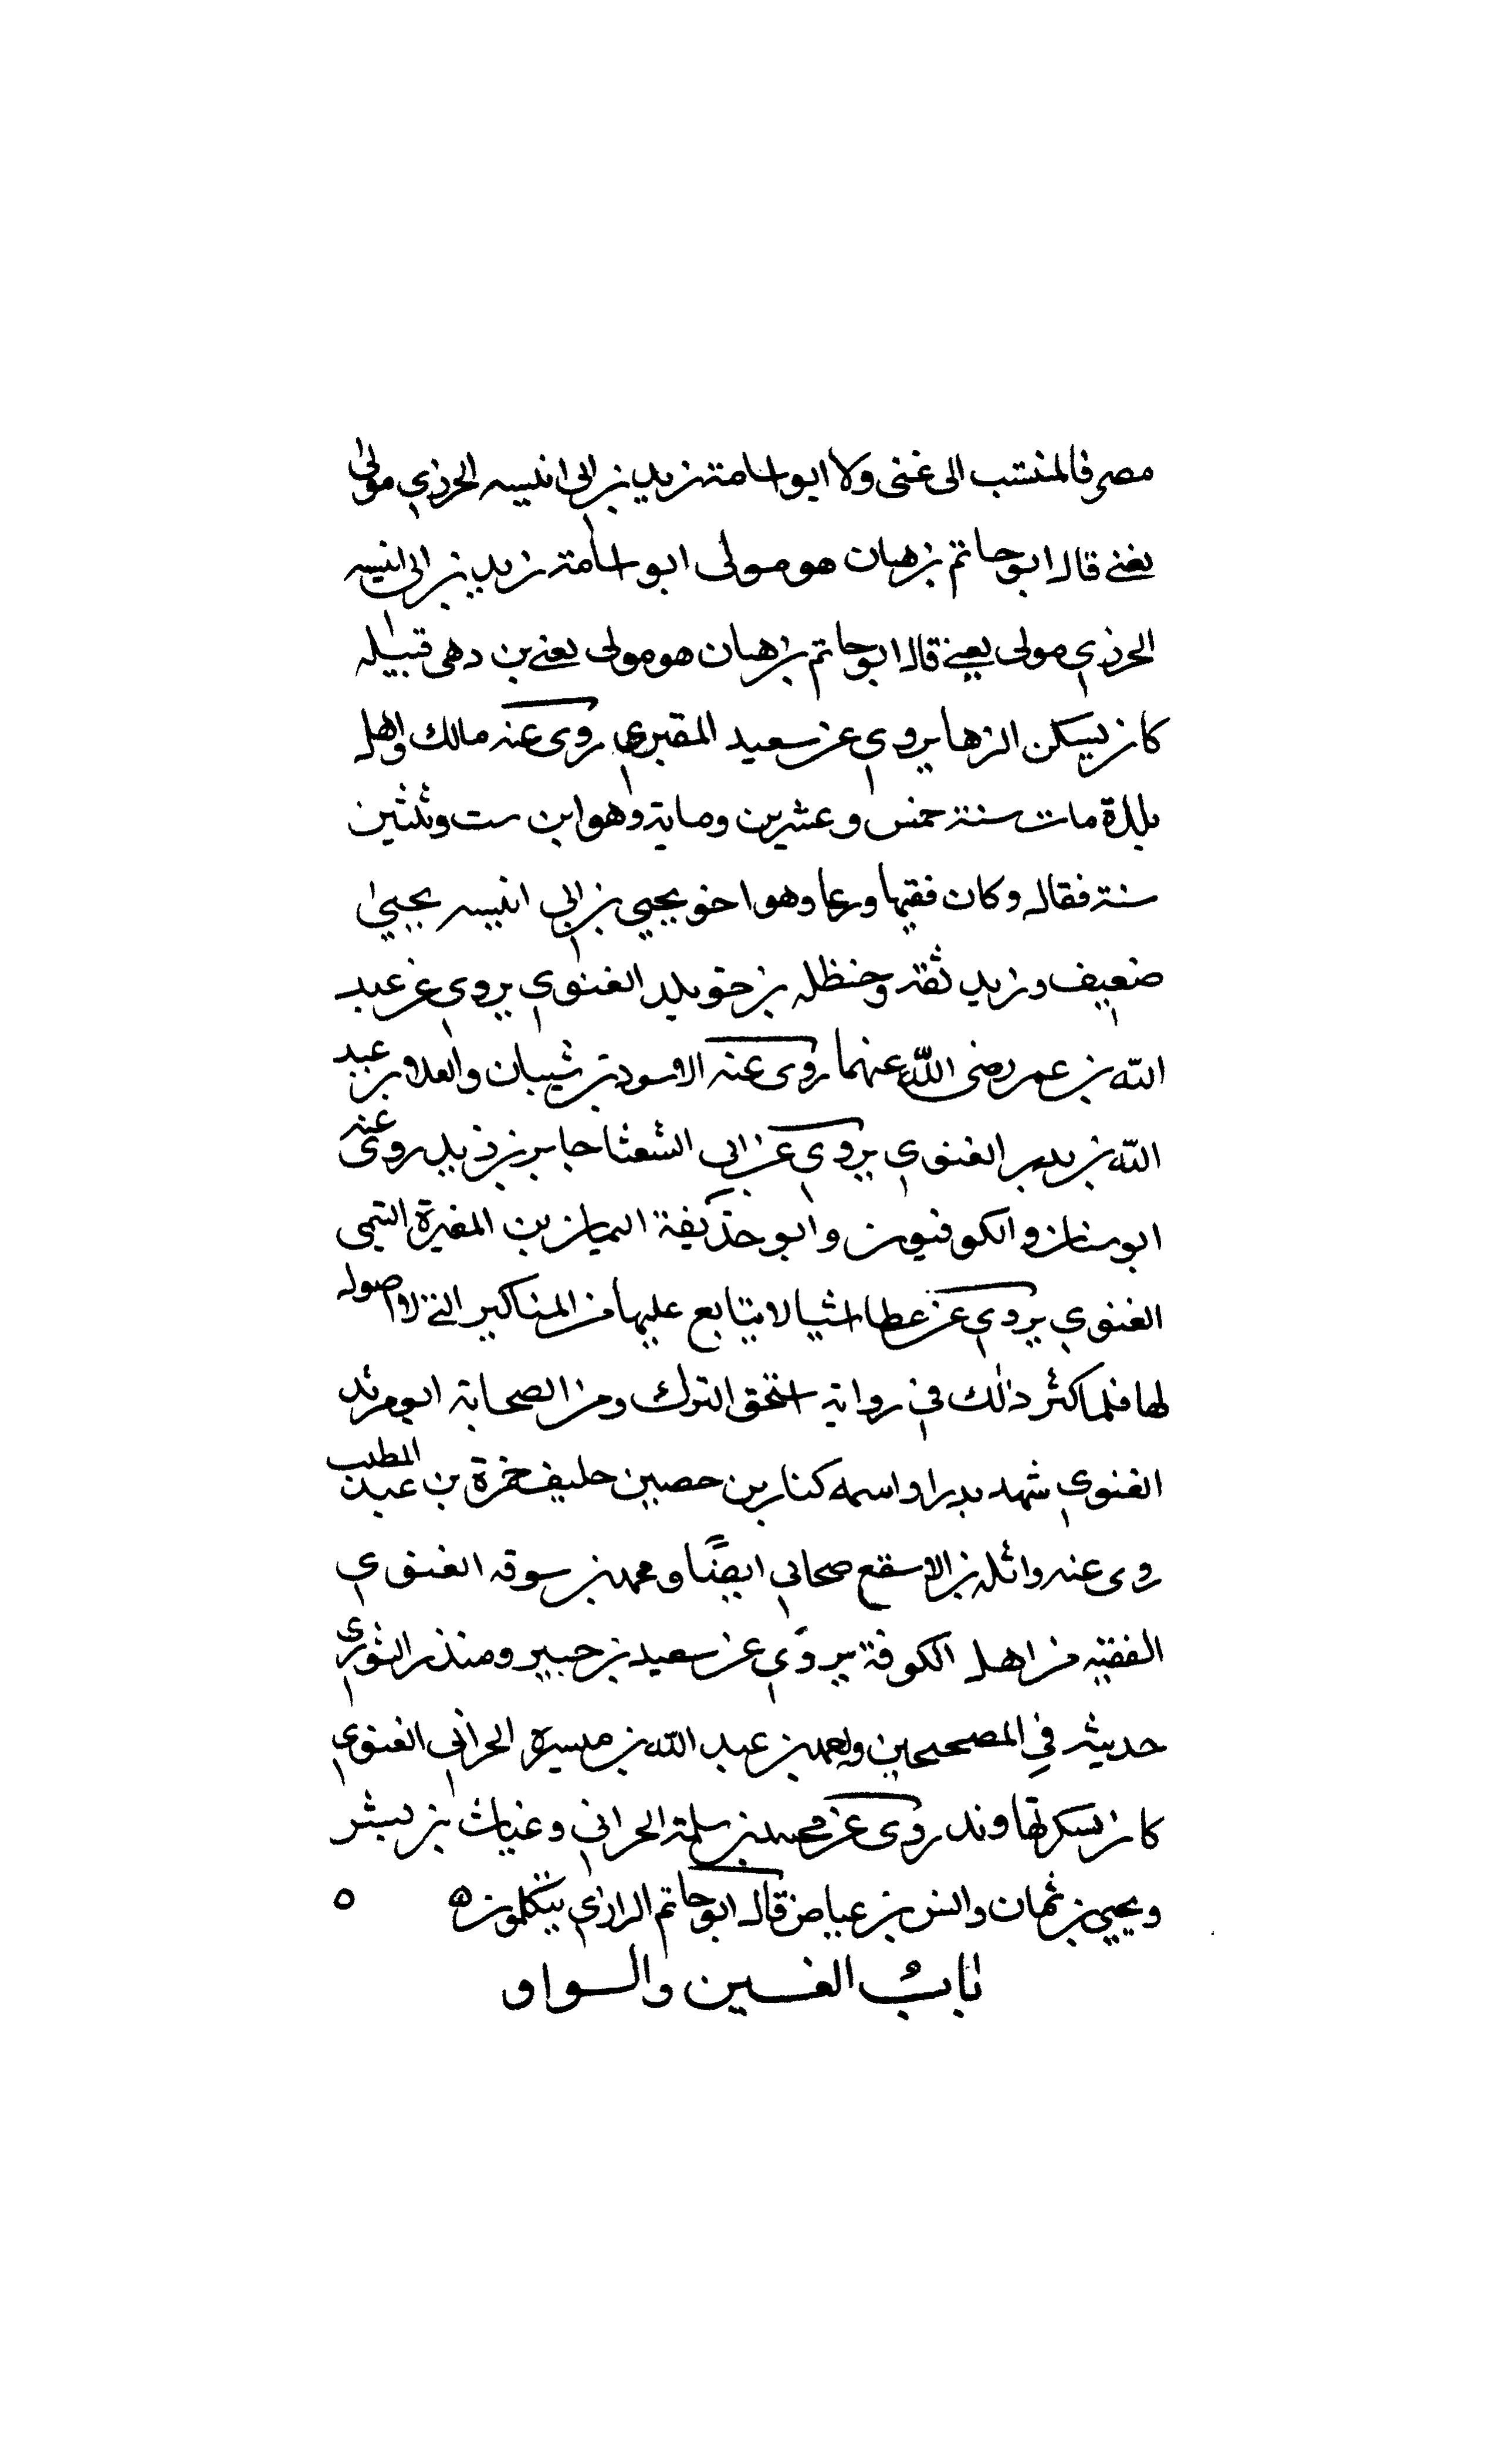 مصر فالمنتسب الى غنى ولا ابو اسامة زيد بن ابي انيسه الجزري مولى
يغني قال ابو حاتم بن هبان هو مولى ابو اسامة زيد بن ابي انيسه
الجزري مولى يعني قال ابو حاتم بن هبان هو مولى يعني بن دهى قبيله
كان يسكن الرها يروي عن سعيد المقبري روى عنه مالك واهل
بلدة مات سنة خمس وعشرين وماية وهو ابن ست وثلثين
سنة فقال وكان فقيها ورعا وهو اخو يحيي بن ابي انيسه يحيي
ضعيف وزيد ثقة وحنظله بن خويلد الغنوي يروي عن عبد
الله بن عمر رضى الله عنهما روى عنه الاسود بن شيبان والعلا بن عبد
الله بن بدر الغنوي يروي عن ابي الشعثا جابر بن زيد روى عنه
ابو سنان والكوفيون وابو حذيفة اليمان بن المغيرة التيمى
الغنوي يروي عن عطا اشيا لا يتابع عليها من المناكير التي لا اصول
لها فلما كثر ذلك في رواية استحق الترك ومن الصحابة ابو مرثد
الغنوي شهد بدرا واسمه كناز بن حصين حليف حمزة بن عبد المطلب
روى عنه واثله بن الاسقع صحابي ايضًا ومحمد بن سوقه الغنوي
الفقيه من اهل الكوفة يروي عن سعيد بن جبير ومنذر الثورى
حديثه في المصحيحين ومحمد بن عبد الله بن ميسرة الحراني الغنوي
كان يسكن نهاوند روى عن محمد بن سلمة الحراني وغياث بن بشر
ويحيي بن ثمان وانس بن عياض قال ابو حاتم الرازي يتكلمون ه ٥
باب الغين والواو